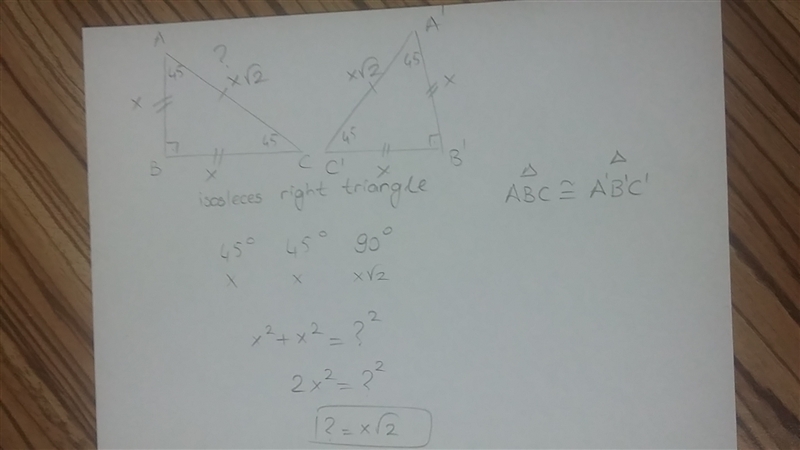 A A'
? 45 x√2 x√2 45
x x
45 45
B x C C' x B'
isosleces right triangle
ABC ≅ A'B'C'
45° 45° 90°
x x x√2
x² + x² = ?²
2x² = ?²
? = x√2